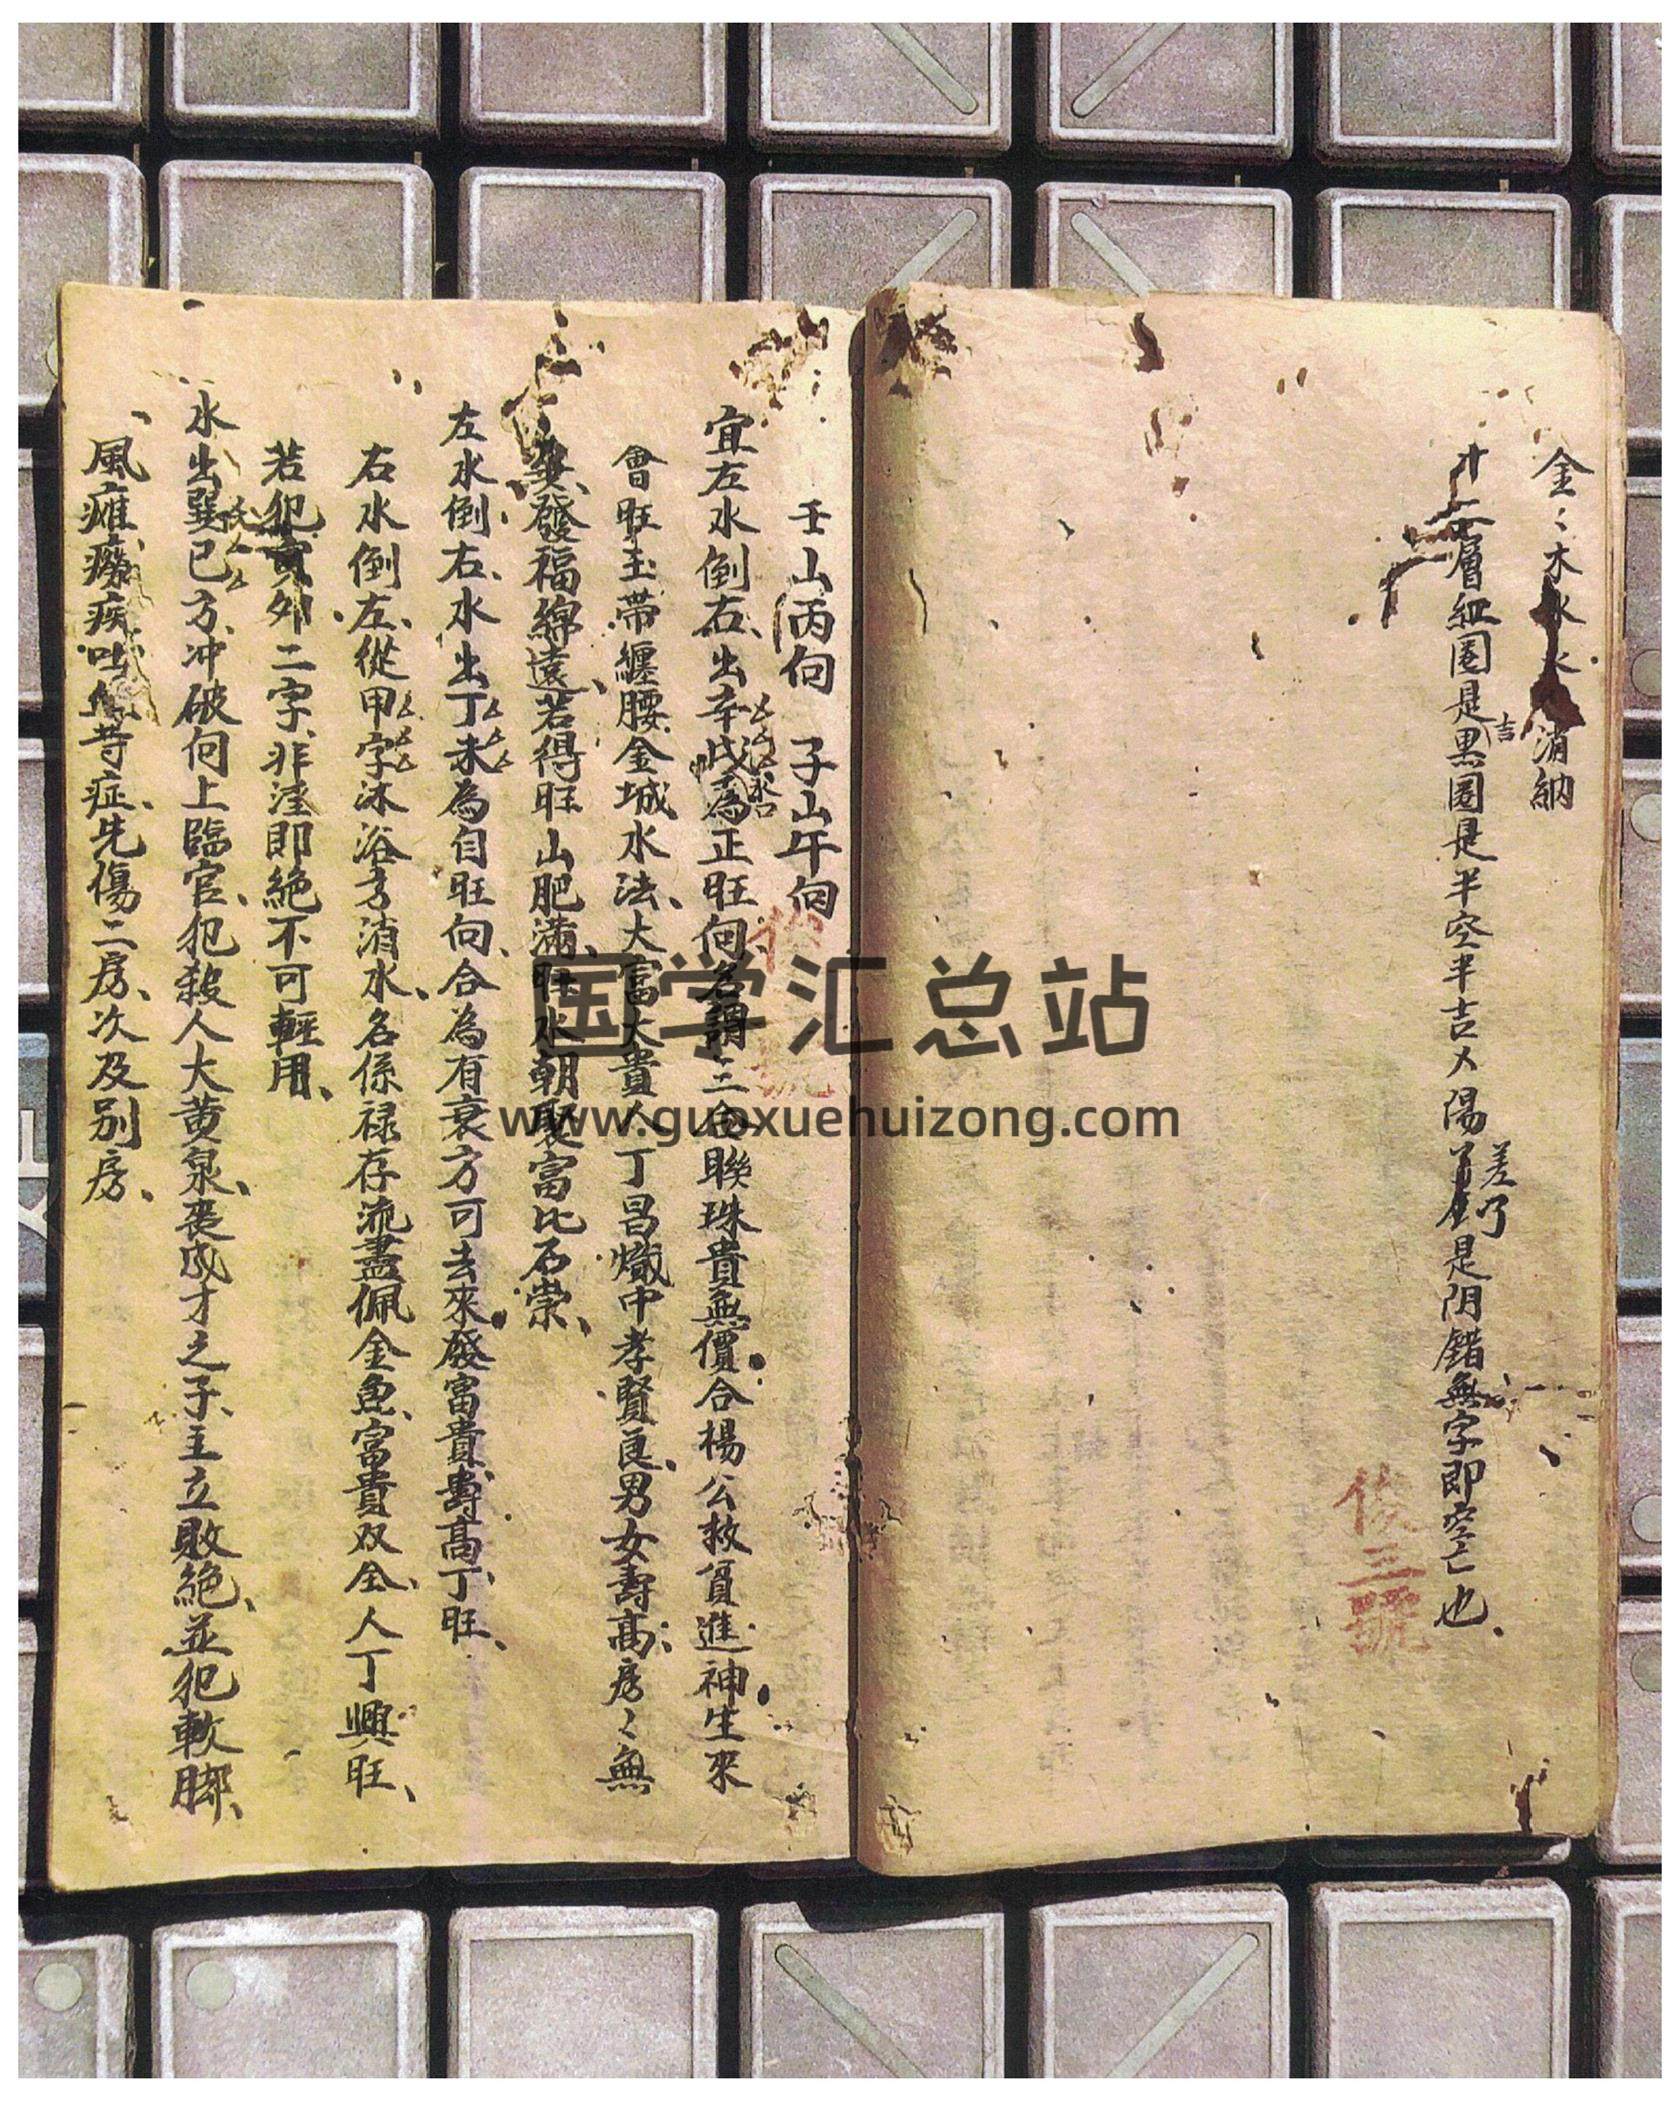 金〻木水水消納
十二層紅圈是吉黑圈是半空半吉乂陽差了是阴錯無字即空亡也
俊三號
壬山丙向 子山午向
宜左水倒右、出辛戌為正旺向、名謂三合聯珠貴無價合楊公救貧進神生來
水口
會旺玉帶纏腰金城水法、大富大貴人丁昌熾中孝賢良、男女壽高、房〻無
發福綿遠、若得旺山肥滿、旺水朝聚富比石崇、
左水倒右、水出丁未為自旺向、合為有衰方可去來發富貴壽高丁旺、
右水倒左、從甲字沐浴方消水、名係禄存流盡佩金魚、富貴双全、人丁興旺、
若犯寅卯二字、非滛即絕不可輕用、
水出巽巳方、冲破向上臨官、犯殺人大黄泉、丧成才之子、主立敗絕、並犯軟腳、
風癱、癆疾、吐等症、先傷二房、次及别房、
国学汇总站
www.guoxuehuizong.com